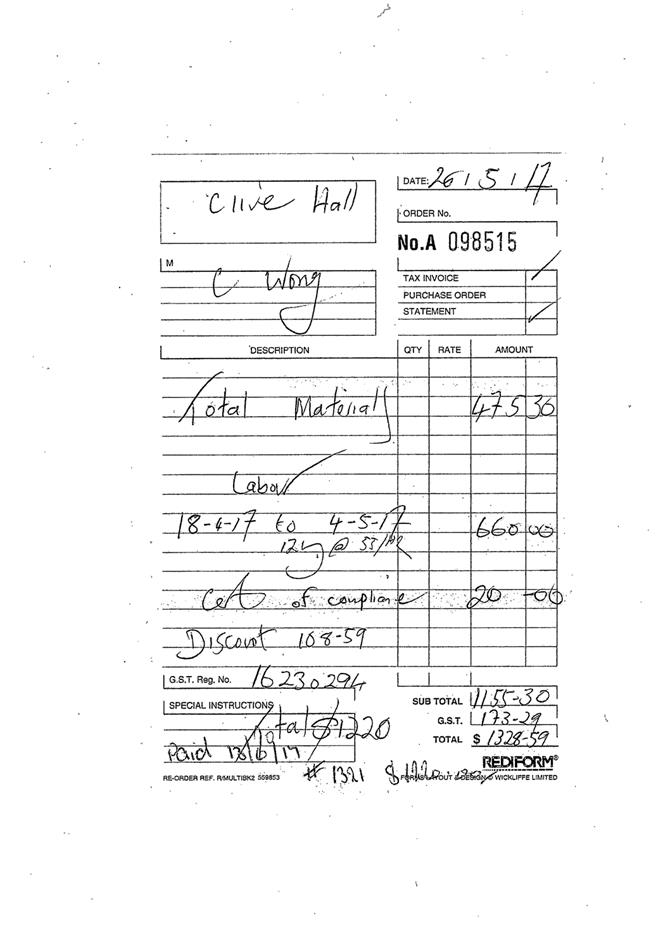 Clive Hall
DATE: 26 / 5 / 17
ORDER No.
No.A 098515
M
C Wong
TAX INVOICE
PURCHASE ORDER
STATEMENT
DESCRIPTION QTY RATE AMOUNT
Total Materials 475 30
Labour
18-4-17 to 4-5-17 660 00
12 @ 55/
Cert of compliance 20 -00
Discount 108-59
G.S.T. Reg. No. 16230294
SUB TOTAL 1155-30
SPECIAL INSTRUCTIONS
G.S.T. 173-29
Total $1220
TOTAL $ 1328-59
Paid
REDIFORM®
# 1321
RE-ORDER REF. R/MULTIBK2 509853
WICKLIFFE LIMITED